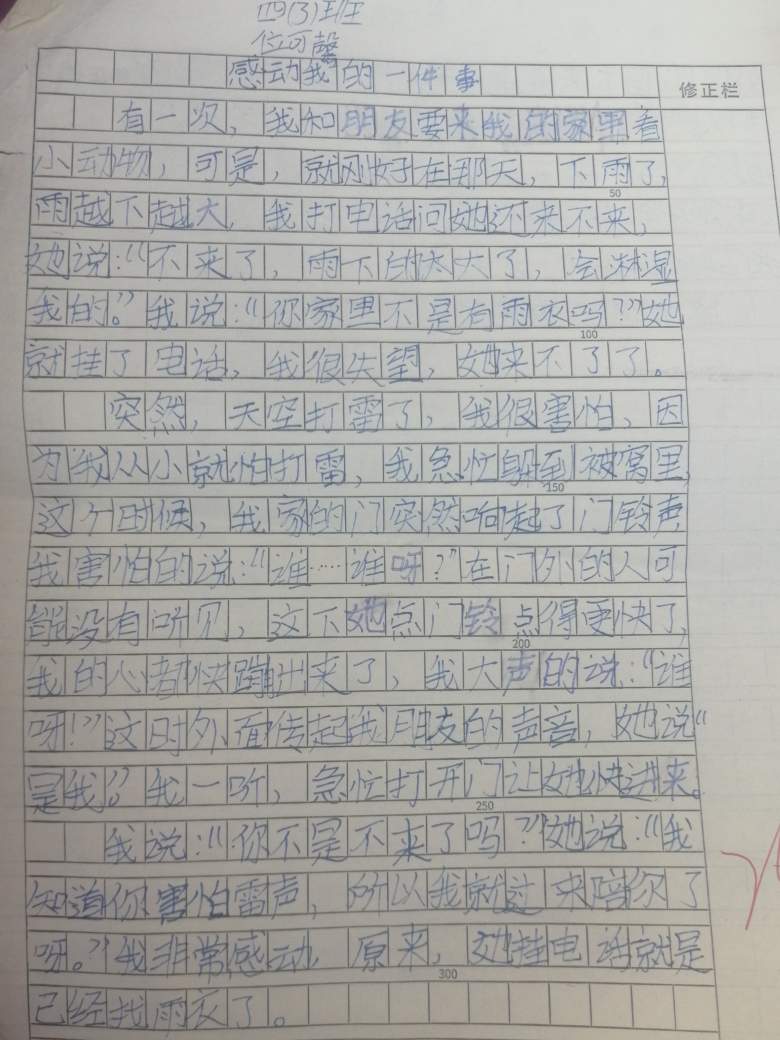 四(3)班
位可馨
感动我的一件事
修正栏
有一次，我和朋友要来我的家里看
小动物，可是，就刚好在那天，下雨了，
50
雨越下越大，我打电话问她还来不来，
她说：“不来了，雨下的太大了，会淋湿
我的。”我说：“你家里不是有雨衣吗？”她
100
就挂了电话，我很失望，她来不了了。
突然，天空打雷了，我很害怕，因
为我从小就怕打雷，我急忙躲到被窝里，
150
这个时候，我家的门突然响起了门铃声
我害怕的说：“谁……谁呀？”在门外的人可
能没有听见，这下她点门铃点得更快了，
200
我的心都快蹦出来了，我大声的说：“谁
呀！”这时外面传起我朋友的声音，她说“
是我”。我一听，急忙打开门让她快进来。
250
我说：“你不是不来了吗？”她说：“我
知道你害怕雷声，所以我就过来陪你了
呀。”我非常感动，原来，她挂电话就是
300
已经找雨衣了。